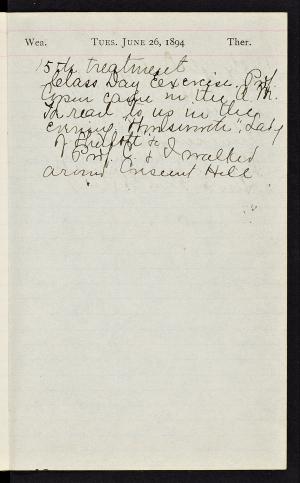 Wea. TUES. JUNE 26, 1894 Ther.
15th treatment
Class Day Exercise. Prof
came in the A.M.
& read to us in the
evening. "Lady
of
Prof. C. & I walked
around Crescent Hill